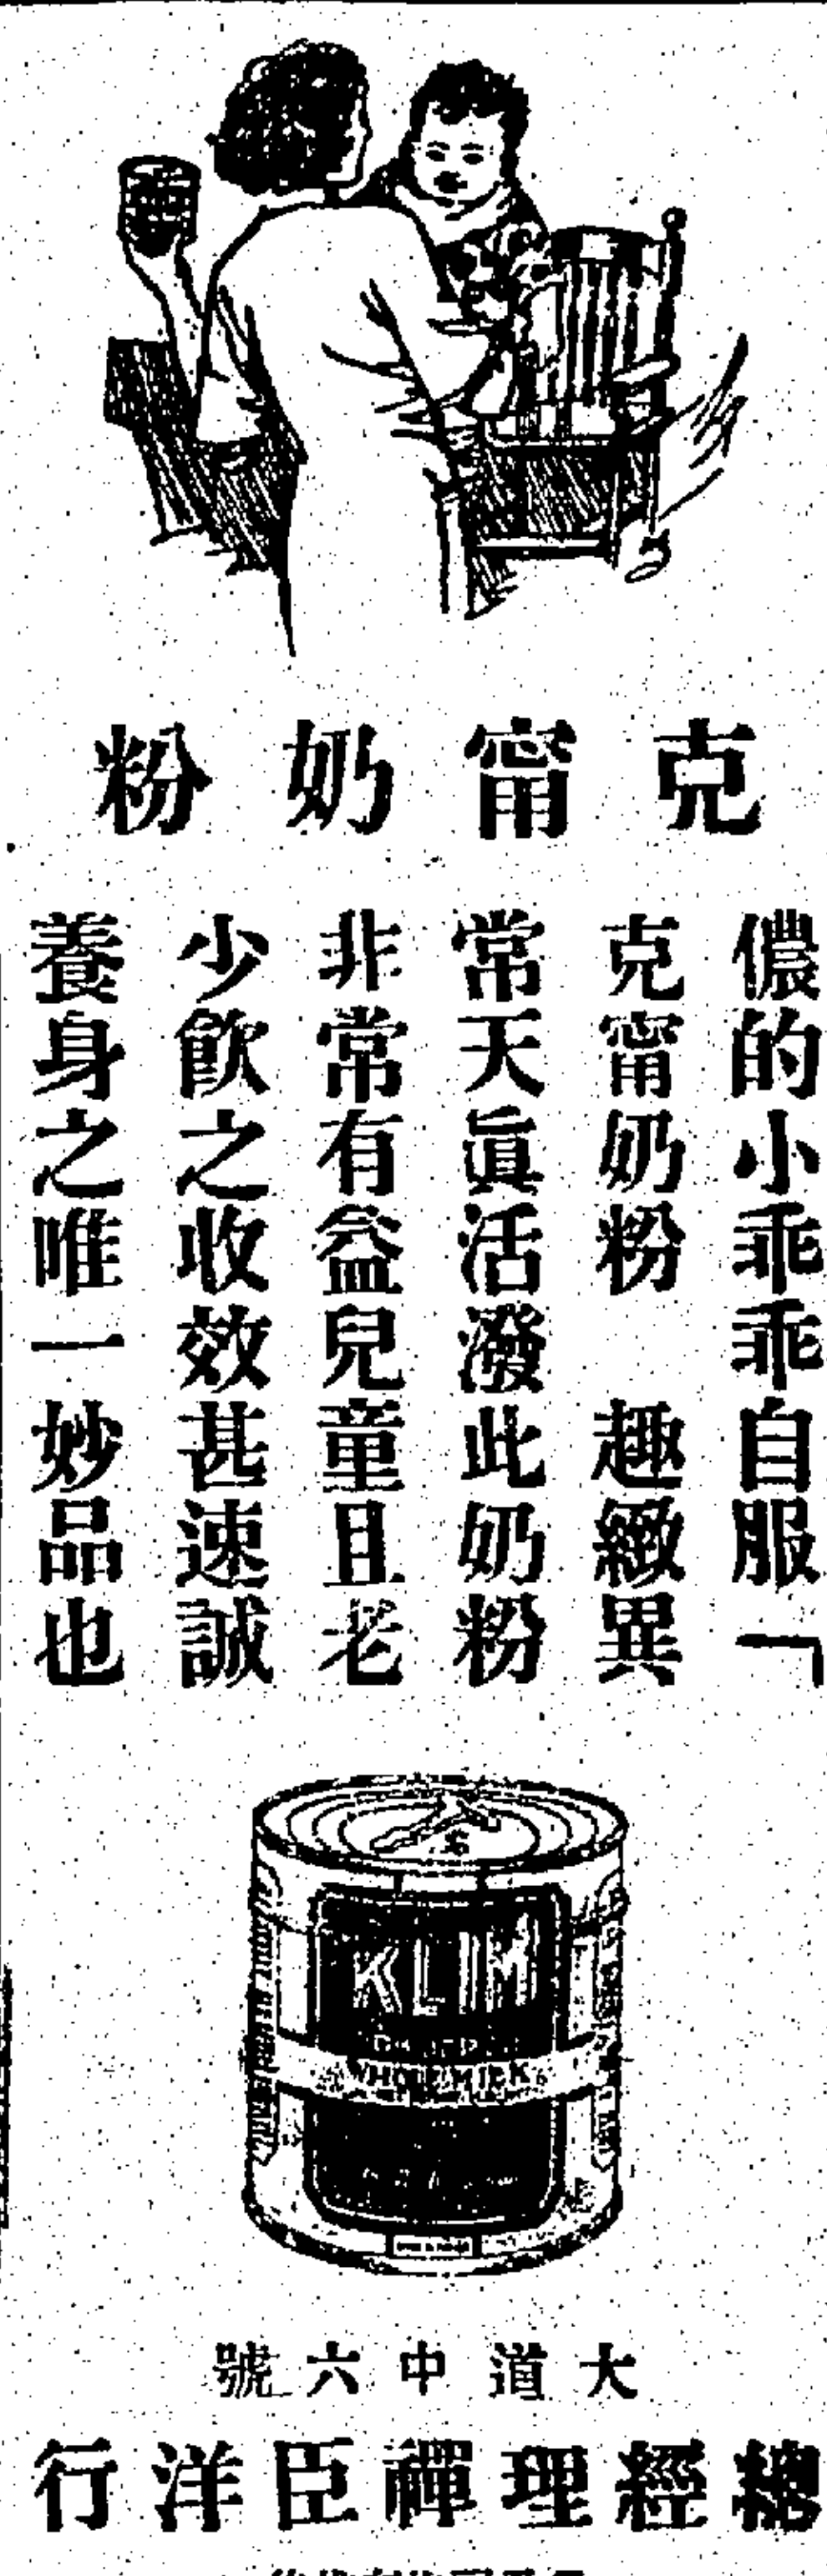 克甯奶粉
儂的小乖乖自服「
克甯奶粉　趣緻異
常天眞活潑此奶粉
非常有益兒童且老
少飮之收效甚速誠
養身之唯一妙品也
KLIM
WHOLE MILK
大道中六號
總經理禪臣洋行